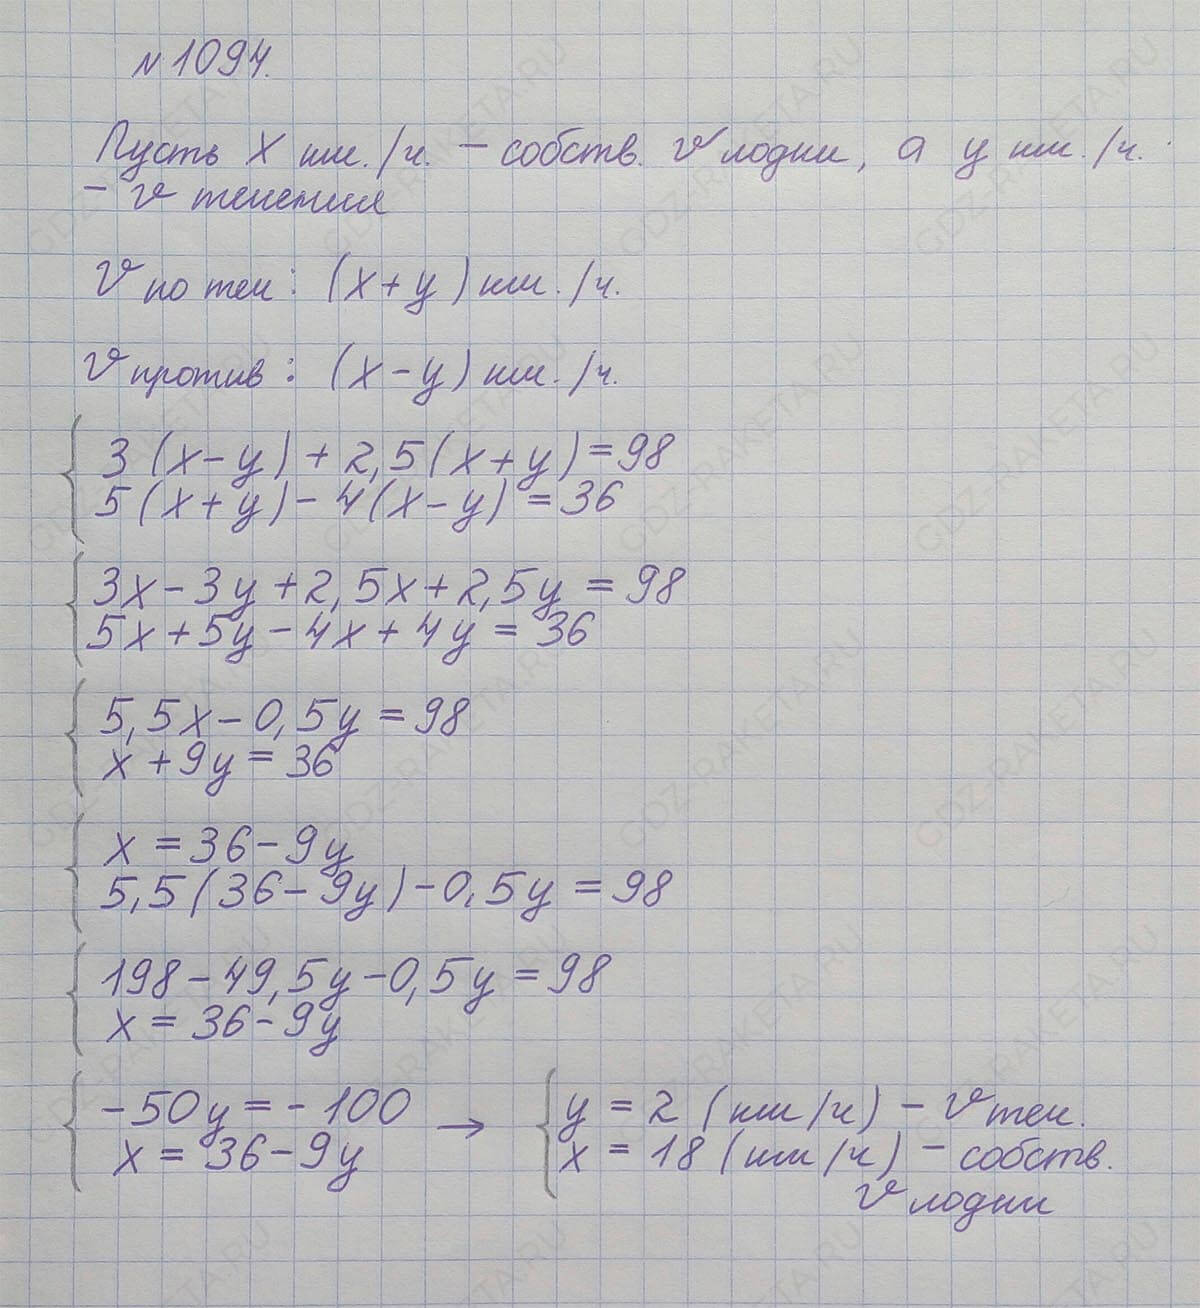 №1094.
Пусть x км./ч. – собств. v лодки, а y км./ч.
– v течения
v по теч: (x+y) км./ч.
v против: (x–y) км./ч.
3(x–y)+2,5(x+y)=98
5(x+y)–4(x–y)=36
3x–3y+2,5x+2,5y=98
5x+5y–4x+4y=36
5,5x–0,5y=98
x+9y=36
x=36–9y
5,5(36–9y)–0,5y=98
198–49,5y–0,5y=98
x=36–9y
–50y=–100 → y=2 (км/ч) – v теч.
x=36–9y x=18 (км/ч) – собств.
v лодки
GDZ-RAKETA.RU